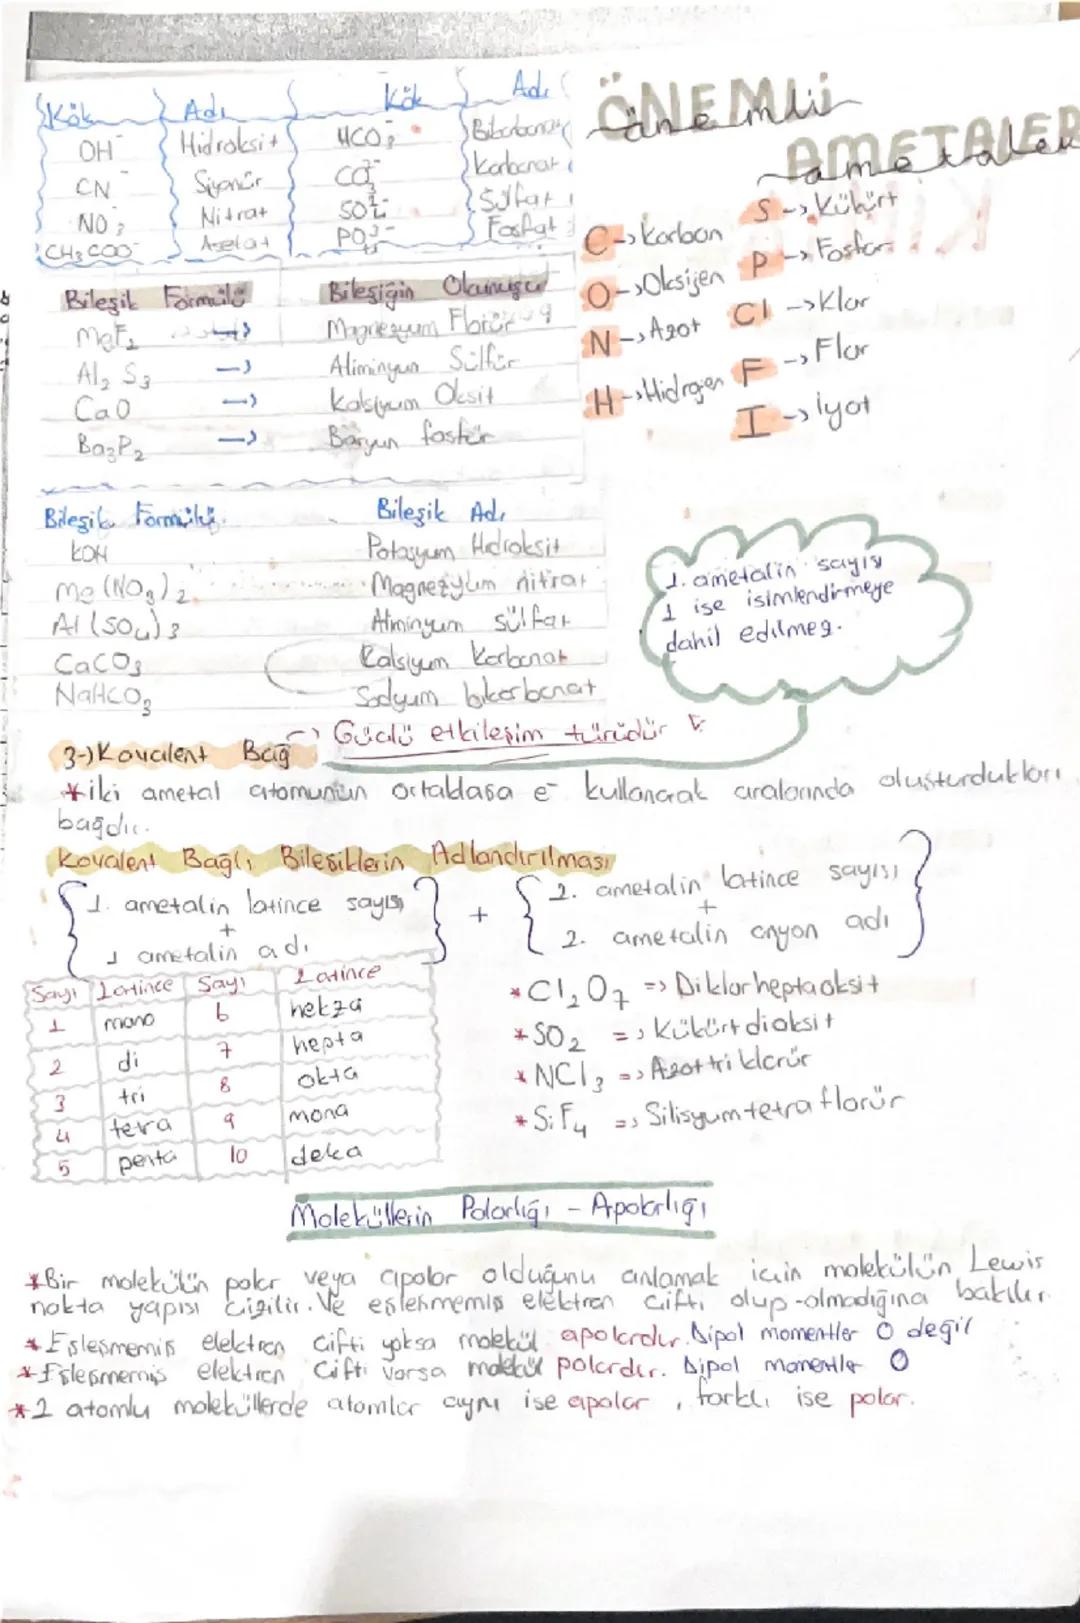 Kök Adı Kök Adı
OH⁻ Hidroksit HCO₃⁻ Bikarbonat
CN⁻ Siyanür CO₃²⁻ Karbonat
NO₃⁻ Nitrat SO₄²⁻ Sülfat
CH₃COO⁻ Asetat PO₄³⁻ Fosfat
ÖNEMLİ
önemli
AMETALLER
ametaller
C -> Karbon
O -> Oksijen
N -> Azot
H -> Hidrojen
S -> Kükürt
P -> Fosfor
Cl -> Klor
F -> Flor
I -> İyot
Bileşik Formülü Bileşiğin Okunuşu
MgF₂ -> Magnezyum Florür
Al₂S₃ -> Aliminyum Sülfür
CaO -> Kalsiyum Oksit
Ba₃P₂ -> Baryum fosfür
Bileşik Formülü Bileşik Adı
KOH Potasyum Hidroksit
Mg(NO₃)₂ Magnezyum nitrat
Al(SO₄)₃ Aliminyum sülfat
CaCO₃ Kalsiyum Karbonat
NaHCO₃ Sodyum bikarbonat
1. ametalin sayısı
1 ise isimlendirmeye
dahil edilmez.
3-) Kovalent Bağ -> Güçlü etkileşim türüdür
* iki ametal atomunun ortaklaşa e⁻ kullanarak aralarında oluşturdukları
bağdır.
Kovalent Bağlı Bileşiklerin Adlandırılması
{1. ametalin latince sayısı + 1 ametalin adı} + {2. ametalin latince sayısı + 2. ametalin anyon adı}
Sayı Latince Sayı Latince
1 mono 6 hekza
2 di 7 hepta
3 tri 8 okta
4 tetra 9 mona
5 penta 10 deka
* Cl₂O₇ => Diklorheptaoksit
* SO₂ => Kükürtdioksit
* NCl₃ => Azottriklorür
* SiF₄ => Silisyumtetraflorür
Moleküllerin Polarlığı - Apolarlığı
* Bir molekülün polar veya apolar olduğunu anlamak için molekülün Lewis
nokta yapısı çizilir. Ve eşleşmemiş elektron çifti olup-olmadığına bakılır.
* Eşleşmemiş elektron çifti yoksa molekül apolardır. Dipol momentler 0 değil
* Eşleşmemiş elektron çifti varsa molekül polardır. Dipol momentler 0
* 2 atomlu moleküllerde atomlar aynı ise apolar, farklı ise polar.